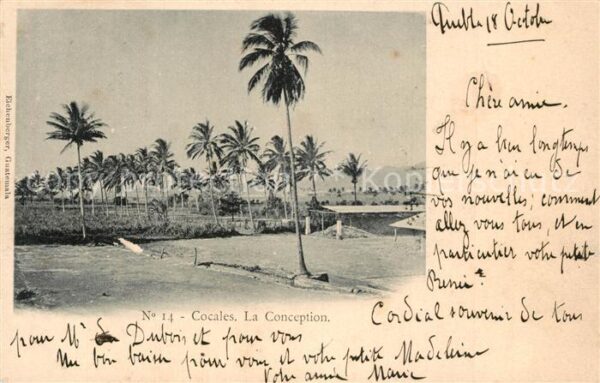 Puebla 18 Octobre
Chère amie.
Il y a bien longtemps
que je n'ai eu de
vos nouvelles; comment
allez vous tous, et en
particulier votre petite
Renée?
Cordial souvenir de tous
pour Mr Dubois et pour vous
Un bon baiser pour vous et votre petite Madeleine
Votre amie Marie
No 14 - Cocales. La Conception.
Eichenberger, Guatemala